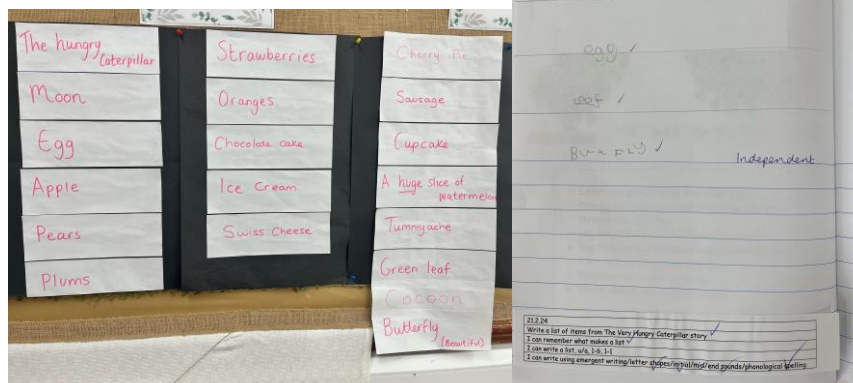 The hungry
Caterpillar
Moon
Egg
Apple
Pears
Plums
Strawberries
Oranges
Chocolate cake
Ice Cream
Swiss Cheese
Cherry Pie
Sausage
Cupcake
A huge slice of
watermelon
Tummyache
Green leaf
Cocoon
Butterfly
(Beautiful)
egg
leaf
Independent
21.2.24
Write a list of items from The Very Hungry Caterpillar story
I can remember what makes a list
I can write a list, w/a, 1-6, 1-1
I can write using emergent writing/letter shapes/initial/mid/end sounds/phonological spelling